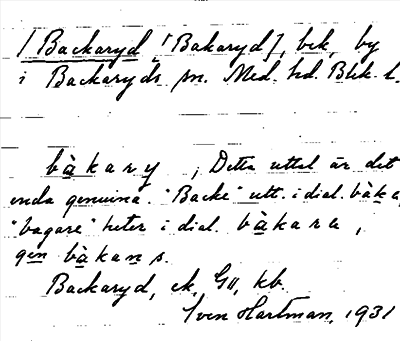 / Backaryd ['Bakaryd], bek, by
i Backaryds sn. Med. hd. Blek. l.
bàkary , Detta uttal är det
enda genuina. "Backe" utt. i dial. bàka,
"bagare" heter i dial. bàkara,
gen bàkans.
Backaryd, ek, GU, kb.
Sven Hartman, 1931